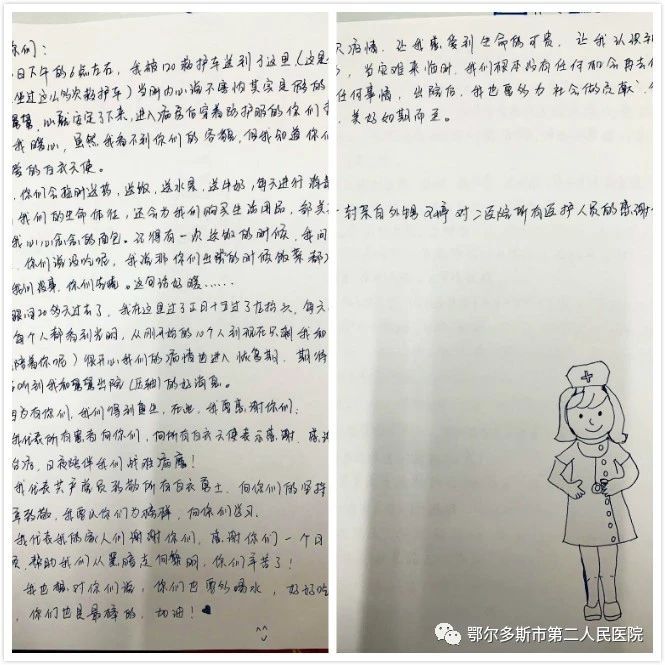 你们:
日下午的6点左右，我被120救护车送到了这里（这是
坐过这么的次救护车）当时内心说不害怕其实是假的
心就安定了下来，进入病房后穿着防护服的你们
我暖心，虽然我看不到你们的容貌，但我知道你们
的白衣天使。
，你们会按时送药，送饭，送水果，送牛奶，每天进行消毒
我们的生命体征，还会为我们购买生活用品，都是
我心心念念的面包。记得有一次送饭的时候，我问
，你们说没吃呢，我说那你们出舱的时候饭菜都
我们没事，你们先吃。这句话好暖……
眼间20多天过去了，我在这里过了正月十五过了
每个人都看到光明，从刚开始的10个人到现在只剩我和
陪着你呢）很开心我们的病情也进入恢复期，期待
听到我和 出院 的好消息。
因为有你们，我们得到重生，在此，我要感谢你们：
我代表所有患者向你们，向所有白衣天使表示感谢，感谢
治疗，日夜陪伴我们战胜病魔！
我代表共产党员致敬所有白衣勇士，向你们的坚持
致敬，我要以你们为榜样，向你们学习
我代表我的家人们谢谢你们，感谢你们一个日
夜，帮助我们从黑暗走向黎明，你们辛苦了！
我也想对你们说，你们也要多喝水，好好吃
，你们也是最棒的，加油！
次病情，让我感受到生命的可贵，让我认识到
，当灾难来临时，我们根本没有任何机会再去
任何事情，出院后，我也要努力为社会做贡献，
，美好如期而至。
一封来自 对二医院所有医护人员的感谢
鄂尔多斯市第二人民医院